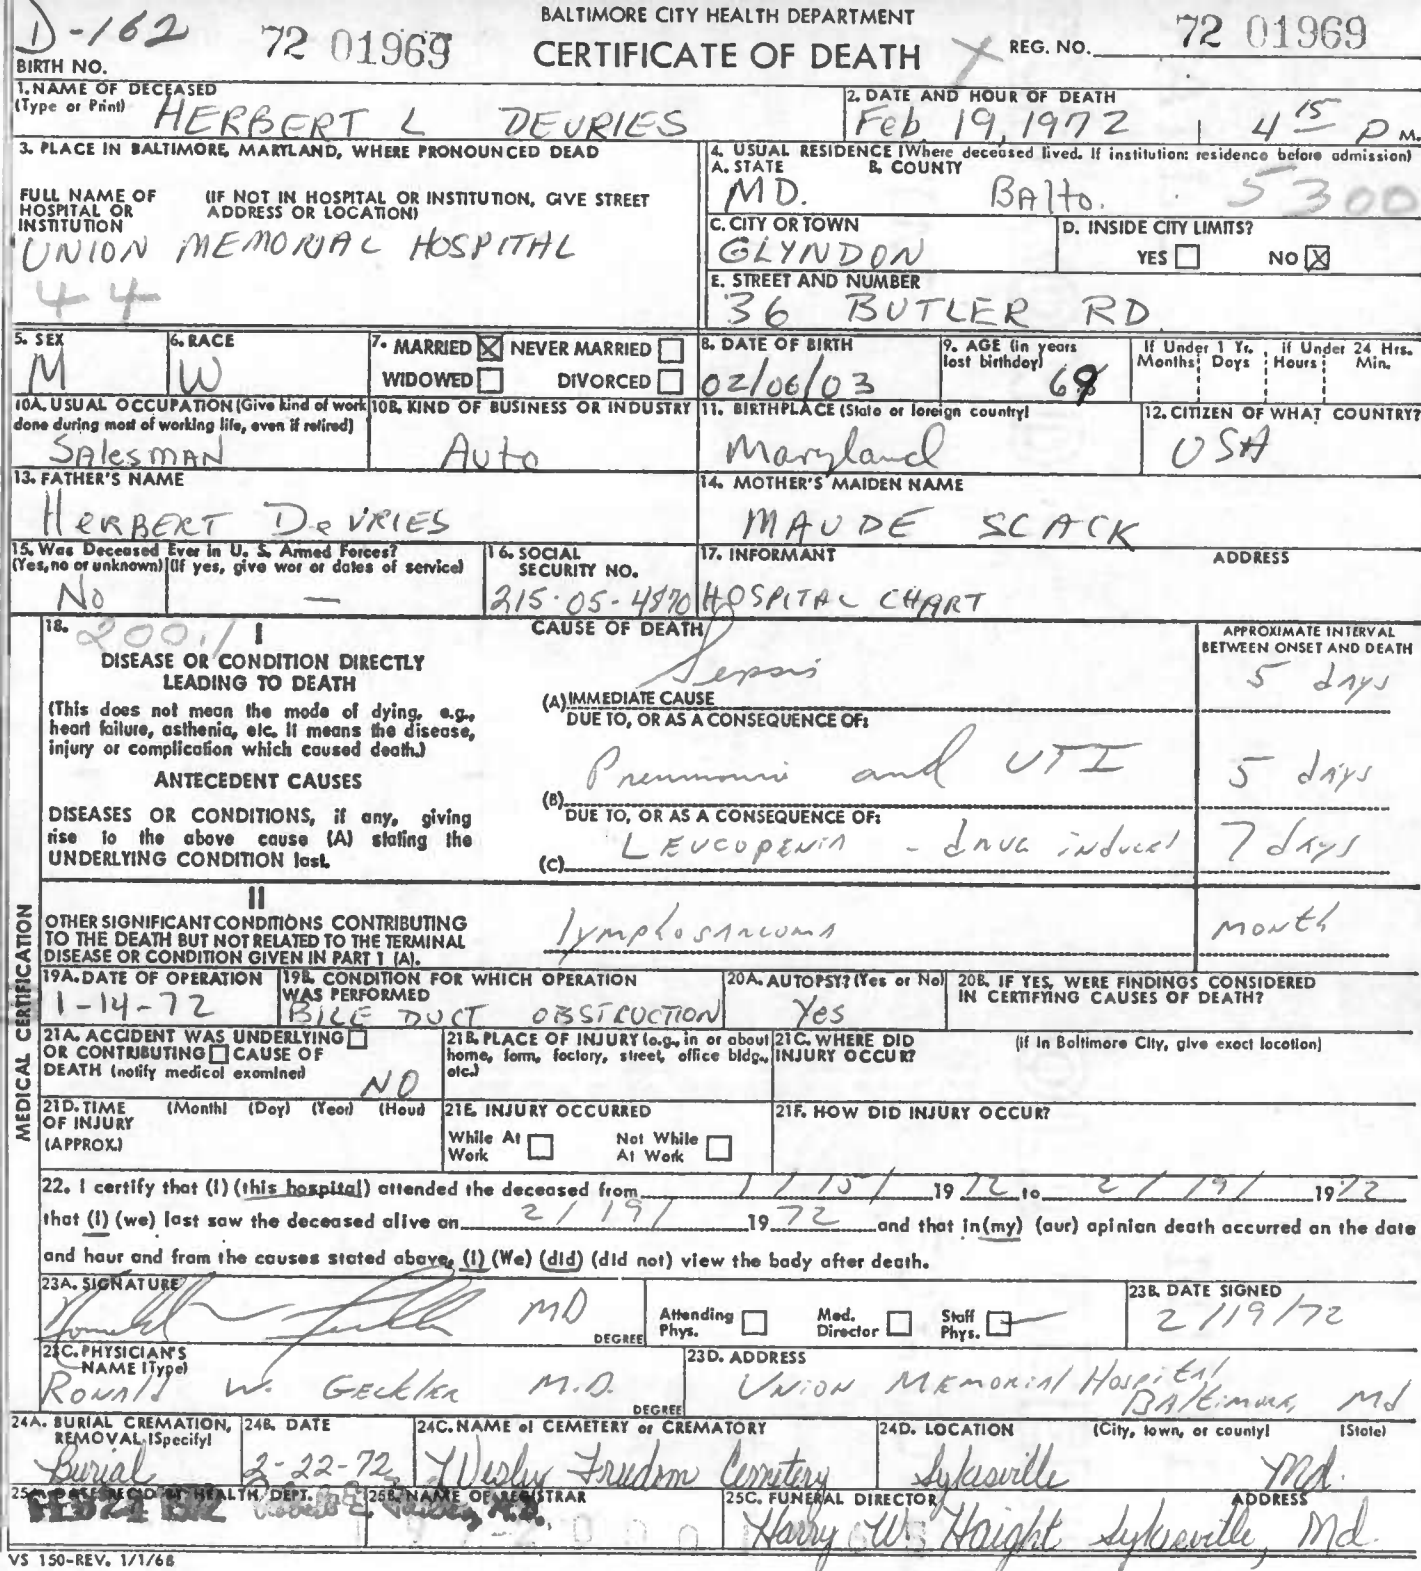 D-162 72 01969 BALTIMORE CITY HEALTH DEPARTMENT 72 01969
BIRTH NO. CERTIFICATE OF DEATH REG. NO.
1. NAME OF DECEASED
(Type or Print) HERBERT L DEVRIES
2. DATE AND HOUR OF DEATH
Feb 19, 1972 4 15 P M.
3. PLACE IN BALTIMORE, MARYLAND, WHERE PRONOUNCED DEAD
FULL NAME OF HOSPITAL OR INSTITUTION (IF NOT IN HOSPITAL OR INSTITUTION, GIVE STREET ADDRESS OR LOCATION)
UNION MEMORIAL HOSPITAL
44
4. USUAL RESIDENCE (Where deceased lived. If institution: residence before admission)
A. STATE B. COUNTY
MD. BAlto. 5300
C. CITY OR TOWN D. INSIDE CITY LIMITS?
GLYNDON YES NO X
E. STREET AND NUMBER
36 BUTLER RD
5. SEX M
6. RACE W
7. MARRIED X NEVER MARRIED
WIDOWED DIVORCED
8. DATE OF BIRTH
02/06/03
9. AGE (in years last birthday)
If Under 1 Yr. Months Days If Under 24 Hrs. Hours Min.
10A. USUAL OCCUPATION (Give kind of work done during most of working life, even if retired)
SAlesMAN
10B. KIND OF BUSINESS OR INDUSTRY
Auto
11. BIRTHPLACE (State or foreign country)
Maryland
12. CITIZEN OF WHAT COUNTRY?
USA
13. FATHER'S NAME
HERBERT DeVRIES
14. MOTHER'S MAIDEN NAME
MAUDE SLACK
15. Was Deceased Ever in U. S. Armed Forces?
(Yes, no or unknown) (If yes, give war or dates of service)
No —
16. SOCIAL SECURITY NO.
215-05-4870
17. INFORMANT ADDRESS
HOSPITAL CHART
18. 200.1 I CAUSE OF DEATH
APPROXIMATE INTERVAL BETWEEN ONSET AND DEATH
DISEASE OR CONDITION DIRECTLY LEADING TO DEATH
(This does not mean the mode of dying, e.g., heart failure, asthenia, etc. It means the disease, injury or complication which caused death.)
Sepsis 5 days
(A) IMMEDIATE CAUSE
DUE TO, OR AS A CONSEQUENCE OF:
ANTECEDENT CAUSES
DISEASES OR CONDITIONS, if any, giving rise to the above cause (A) stating the UNDERLYING CONDITION last.
Pneumonia and UTI 5 days
(B)
DUE TO, OR AS A CONSEQUENCE OF:
LEUCOPENIA - drug induced 7 days
(C)
II
OTHER SIGNIFICANT CONDITIONS CONTRIBUTING TO THE DEATH BUT NOT RELATED TO THE TERMINAL DISEASE OR CONDITION GIVEN IN PART 1 (A).
lymphosarcoma month
MEDICAL CERTIFICATION
19A. DATE OF OPERATION
1-14-72
19B. CONDITION FOR WHICH OPERATION WAS PERFORMED
BILE DUCT OBSTRUCTION
20A. AUTOPSY? (Yes or No)
Yes
20B. IF YES, WERE FINDINGS CONSIDERED IN CERTIFYING CAUSES OF DEATH?
21A. ACCIDENT WAS UNDERLYING OR CONTRIBUTING CAUSE OF DEATH (notify medical examiner)
NO
21B. PLACE OF INJURY (e.g., in or about home, farm, factory, street, office bldg., etc.)
21C. WHERE DID INJURY OCCUR? (if in Baltimore City, give exact location)
21D. TIME OF INJURY (APPROX.) (Month) (Day) (Year) (Hour)
21E. INJURY OCCURRED
While At Work Not While At Work
21F. HOW DID INJURY OCCUR?
22. I certify that (I) (this hospital) attended the deceased from 1/15/ 1972 to 2/19/ 1972
that (I) (we) last saw the deceased alive on 2/19/ 1972 and that in (my) (our) opinion death occurred on the date
and hour and from the causes stated above, (I) (We) (did) (did not) view the body after death.
23A. SIGNATURE
MD DEGREE
Attending Phys. Med. Director Staff Phys.
23B. DATE SIGNED
2/19/72
23C. PHYSICIAN'S NAME (Type)
RONALD W. GECKLER M.D. DEGREE
23D. ADDRESS
UNION MEMORIAL HOSPITAL
BAltimore, Md
24A. BURIAL CREMATION, REMOVAL (Specify)
Burial
24B. DATE
2-22-72
24C. NAME of CEMETERY or CREMATORY
Wesley Freedom Cemetery
24D. LOCATION (City, town, or county) (State)
Sykesville Md.
25A. DATE REC'D BY HEALTH DEPT.
25B. NAME OF REGISTRAR
25C. FUNERAL DIRECTOR ADDRESS
Harry W. Haight Sykesville, Md.
VS 150-REV. 1/1/68